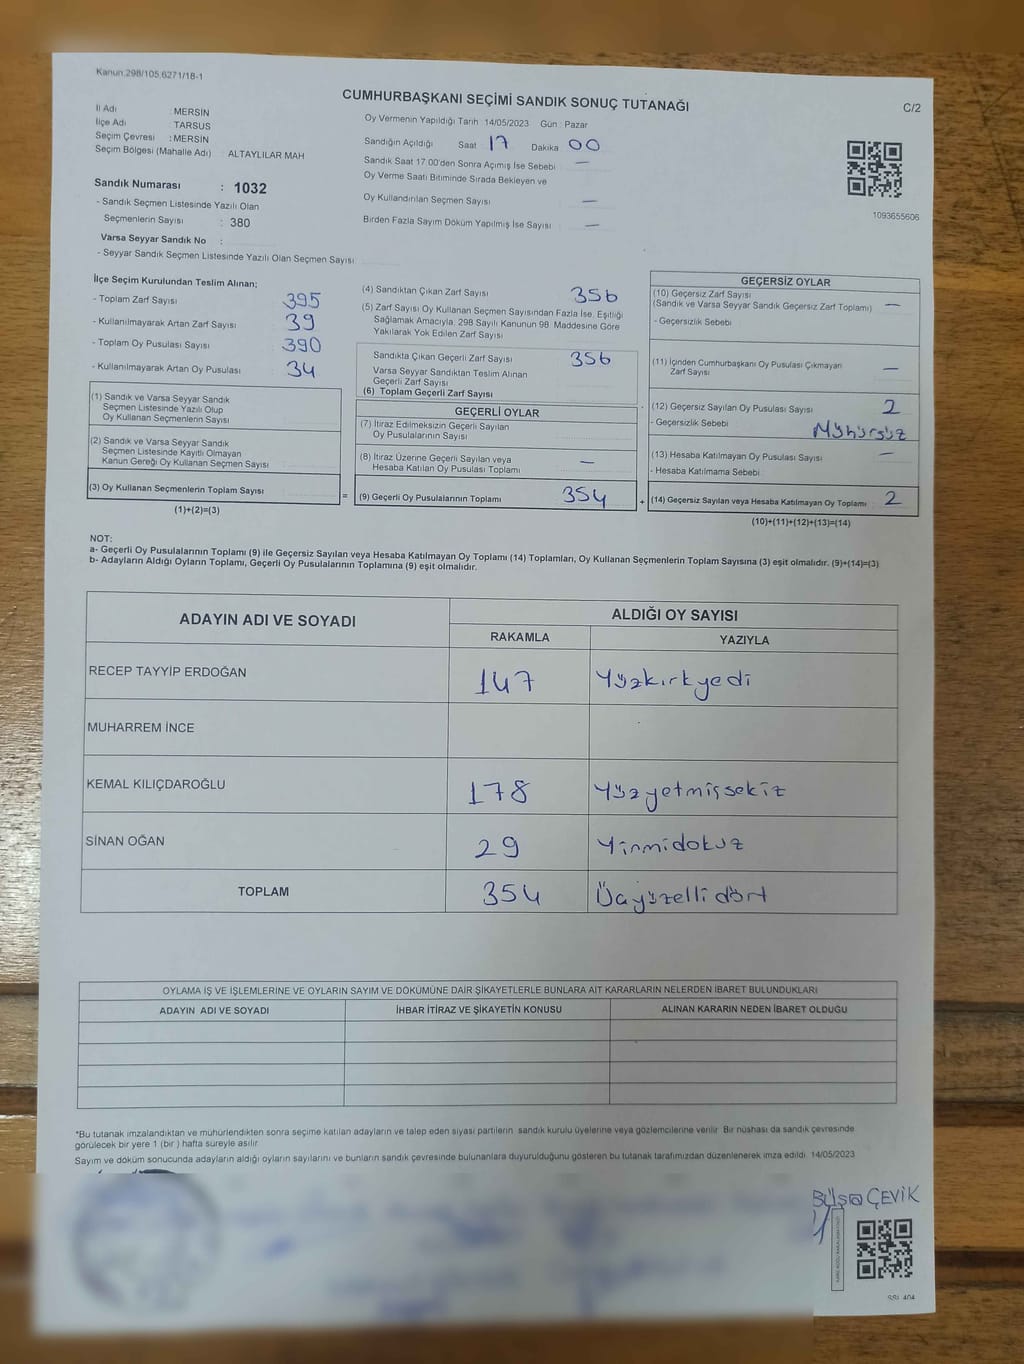 Kanun.298/105,6271/18-1
CUMHURBAŞKANI SEÇİMİ SANDIK SONUÇ TUTANAĞI
C/2
İl Adı : MERSİN
İlçe Adı : TARSUS
Seçim Çevresi : MERSİN
Seçim Bölgesi (Mahalle Adı) : ALTAYLILAR MAH
Sandık Numarası : 1032
- Sandık Seçmen Listesinde Yazılı Olan
Seçmenlerin Sayısı : 380
Varsa Seyyar Sandık No :
- Seyyar Sandık Seçmen Listesinde Yazılı Olan Seçmen Sayısı
Oy Vermenin Yapıldığı Tarih 14/05/2023 Gün : Pazar
Sandığın Açıldığı Saat 17 Dakika 00
Sandık Saat 17:00'den Sonra Açımış İse Sebebi —
Oy Verme Saati Bitiminde Sırada Bekleyen ve
Oy Kullandırılan Seçmen Sayısı —
Birden Fazla Sayım Döküm Yapılmış İse Sayısı —
1093655606
İlçe Seçim Kurulundan Teslim Alınan;
- Toplam Zarf Sayısı 395
- Kullanılmayarak Artan Zarf Sayısı 39
- Toplam Oy Pusulası Sayısı 390
- Kullanılmayarak Artan Oy Pusulası 34
(1) Sandık ve Varsa Seyyar Sandık
Seçmen Listesinde Yazılı Olup
Oy Kullanan Seçmenlerin Sayısı
(2) Sandık ve Varsa Seyyar Sandık
Seçmen Listesinde Kayıtlı Olmayan
Kanun Gereği Oy Kullanan Seçmen Sayısı
(3) Oy Kullanan Seçmenlerin Toplam Sayısı
(1)+(2)=(3)
=
(4) Sandıktan Çıkan Zarf Sayısı 356
(5) Zarf Sayısı Oy Kullanan Seçmen Sayısından Fazla İse, Eşitliği
Sağlamak Amacıyla, 298 Sayılı Kanunun 98. Maddesine Göre
Yakılarak Yok Edilen Zarf Sayısı
Sandıkta Çıkan Geçerli Zarf Sayısı 356
Varsa Seyyar Sandıktan Teslim Alınan
Geçerli Zarf Sayısı
(6) Toplam Geçerli Zarf Sayısı
GEÇERLİ OYLAR
(7) İtiraz Edilmeksizin Geçerli Sayılan
Oy Pusulalarının Sayısı
(8) İtiraz Üzerine Geçerli Sayılan veya
Hesaba Katılan Oy Pusulası Toplamı —
(9) Geçerli Oy Pusulalarının Toplamı 354
+
GEÇERSİZ OYLAR
(10) Geçersiz Zarf Sayısı
(Sandık ve Varsa Seyyar Sandık Geçersiz Zarf Toplamı) —
- Geçersizlik Sebebi
(11) İçinden Cumhurbaşkanı Oy Pusulası Çıkmayan
Zarf Sayısı —
(12) Geçersiz Sayılan Oy Pusulası Sayısı 2
- Geçersizlik Sebebi Mühürsüz
(13) Hesaba Katılmayan Oy Pusulası Sayısı —
- Hesaba Katılmama Sebebi
(14) Geçersiz Sayılan veya Hesaba Katılmayan Oy Toplamı 2
(10)+(11)+(12)+(13)=(14)
NOT:
a- Geçerli Oy Pusulalarının Toplamı (9) ile Geçersiz Sayılan veya Hesaba Katılmayan Oy Toplamı (14) Toplamları, Oy Kullanan Seçmenlerin Toplam Sayısına (3) eşit olmalıdır. (9)+(14)=(3)
b- Adayların Aldığı Oyların Toplamı, Geçerli Oy Pusulalarının Toplamına (9) eşit olmalıdır.
ADAYIN ADI VE SOYADI ALDIĞI OY SAYISI
RAKAMLA YAZIYLA
RECEP TAYYİP ERDOĞAN 147 Yüzkırkyedi
MUHARREM İNCE
KEMAL KILIÇDAROĞLU 178 Yüzyetmişsekiz
SİNAN OĞAN 29 Yirmidokuz
TOPLAM 354 Üçyüzellidört
OYLAMA İŞ VE İŞLEMLERİNE VE OYLARIN SAYIM VE DÖKÜMÜNE DAİR ŞİKAYETLERLE BUNLARA AİT KARARLARIN NELERDEN İBARET BULUNDUKLARI
ADAYIN ADI VE SOYADI İHBAR İTİRAZ VE ŞİKAYETİN KONUSU ALINAN KARARIN NEDEN İBARET OLDUĞU
*Bu tutanak imzalandıktan ve mühürlendikten sonra seçime katılan adayların ve talep eden siyasi partilerin sandık kurulu üyelerine veya gözlemcilerine verilir. Bir nüshası da sandık çevresinde
görülecek bir yere 1 (bir ) hafta süreyle asılır.
Sayım ve döküm sonucunda adayların aldığı oyların sayılarını ve bunların sandık çevresinde bulunanlara duyurulduğunu gösteren bu tutanak tarafımızdan düzenlenerek imza edildi. 14/05/2023
BÜŞRA ÇEVİK